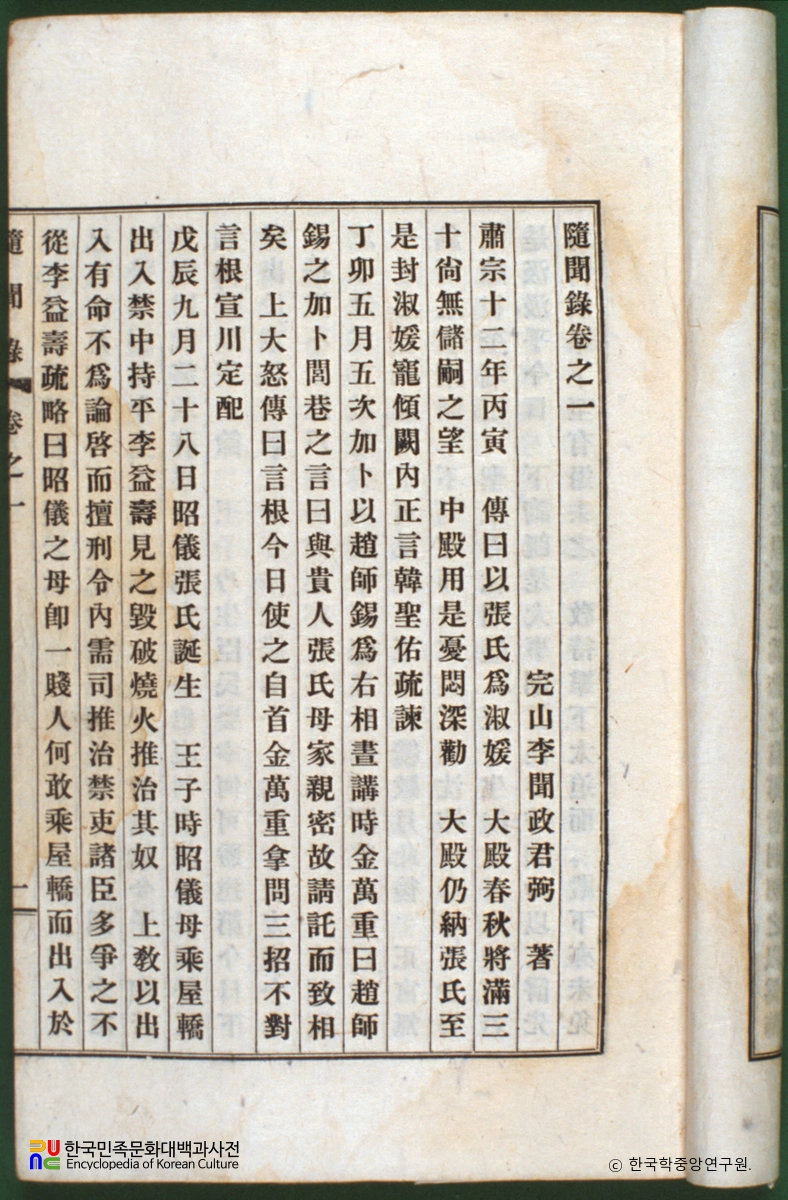 隨聞錄卷之一
完山李聞政君弼 著
肅宗十二年丙寅 傳曰以張氏爲淑媛 大殿春秋將滿三
十尙無儲嗣之望 中殿用是憂悶深勸 大殿仍納張氏至
是封淑媛寵傾闕內正言韓聖佑疏諫
丁卯五月五次加卜以趙師錫爲右相晝講時金萬重曰趙師
錫之加卜閭巷之言曰與貴人張氏母家親密故請託而致相
矣 上大怒傳曰言根今日使之自首金萬重拿問三招不對
言根宣川定配
戊辰九月二十八日昭儀張氏誕生 王子時昭儀母乘屋轎
出入禁中持平李益壽見之毀破燒火推治其奴 上敎以出
入有命不爲論啓而擅刑令內需司推治禁吏諸臣多爭之不
從李益壽疏略曰昭儀之母卽一賤人何敢乘屋轎而出入於
隨聞錄 卷之一
一
한국민족문화대백과사전
Encyclopedia of Korean Culture
© 한국학중앙연구원.